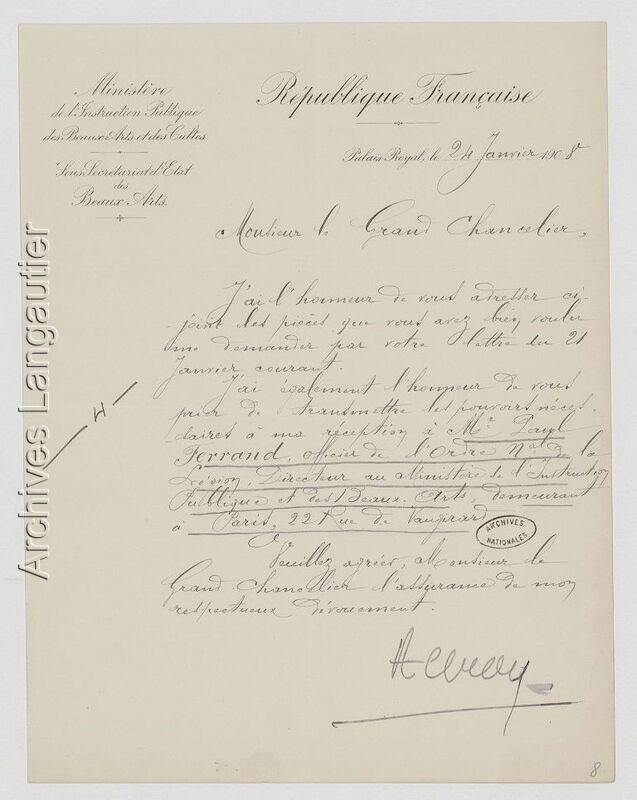 Ministère
de l'Instruction Publique
des Beaux-Arts, et des Cultes
Sous Secrétariat d'Etat
des
Beaux Arts.
République Française
Palais Royal, le 24 Janvier 1908
Monsieur le Grand Chancelier,
J'ai l'honneur de vous adresser ci-
-joint les pièces que vous avez bien voulu
me demander par votre lettre du 21
Janvier courant.
J'ai également l'honneur de vous
prier de transmettre les pouvoirs néces-
saires à ma réception à Mr. Paul
Ferrand, officier de l'Ordre Nat de la
Légion, Directeur au Ministère de l'Instruction
Publique et des Beaux-Arts, demeurant
à Paris, 22 Rue de Vaugirard
Veuillez agréer, Monsieur le
Grand Chancelier l'assurance de mon
respectueux dévouement.
ARCHIVES
NATIONALES
8
Archives Langautier